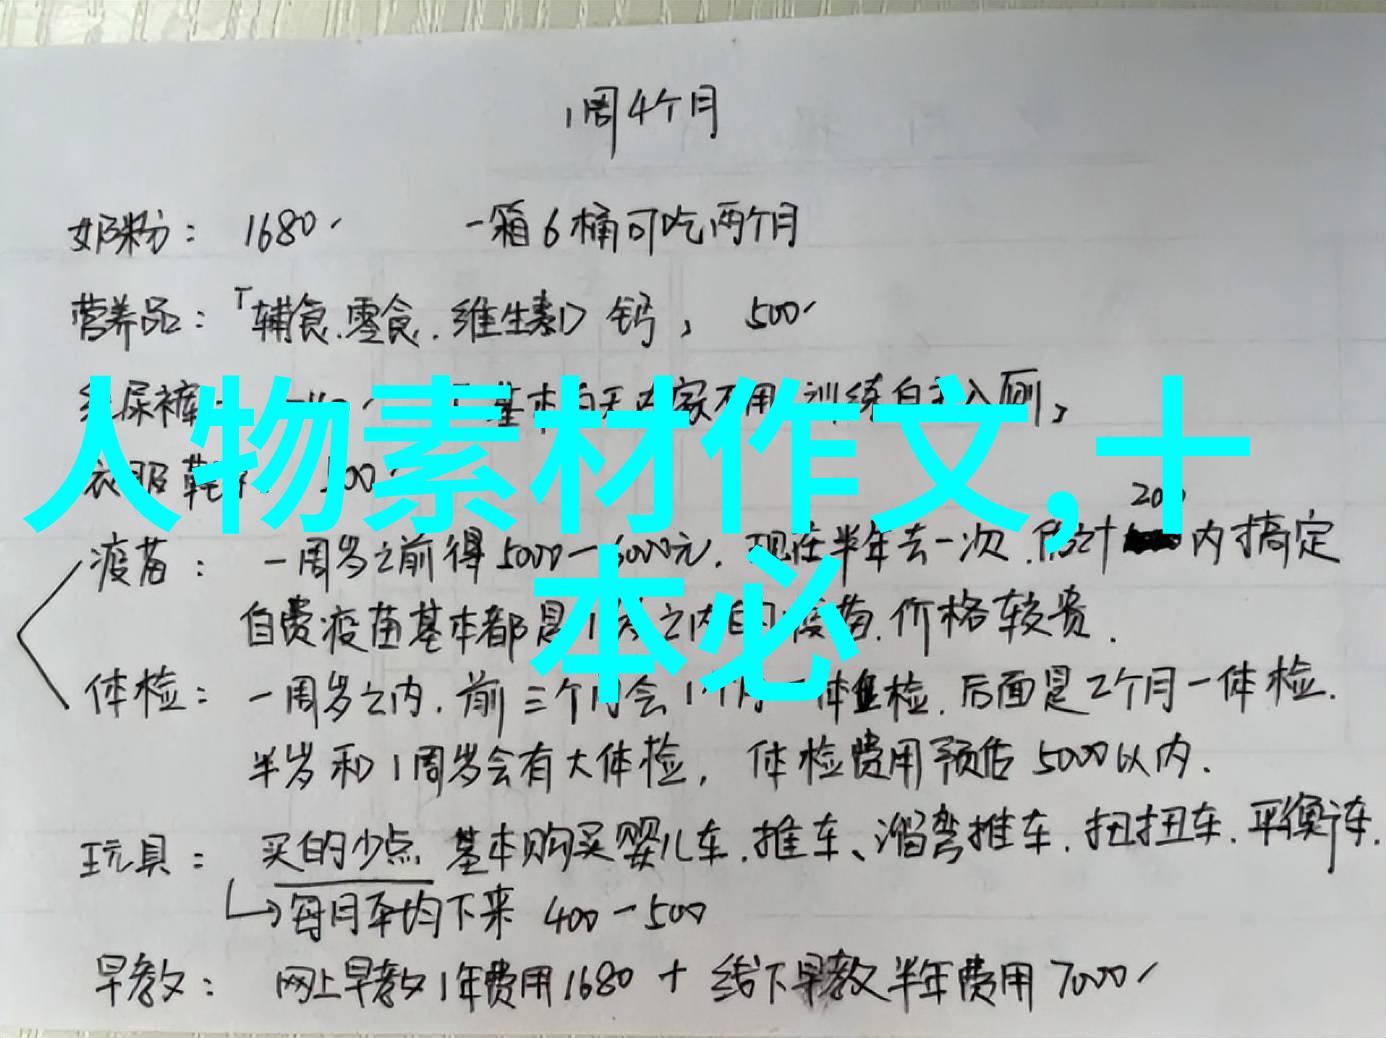 1周4个月
奶粉： 1680 一箱6桶可吃两个月
营养品：「辅食.零食.维生素D 钙， 500
尿裤 基本白天在家不用 训练自主入厕，
人物素材作文,十
本必
衣服 鞋 500
200
疫苗： 一周岁之前得5000一6000元. 现在半年去一次.估计 内搞定
自费疫苗基本都是1岁之内的疫苗.价格较贵.
体检： 一周岁之内.前三个月会1个月一体检.后面是2个月一体检.
半岁和1周岁会有大体检， 体检费用预估5000以内.
玩具： 买的少点 基本购买婴儿车.推车、溜弯推车.扭扭车.平衡车.
每月平均下来 400一500
早教： 网上早教1年费用1680 + 线下早教半年费用7000